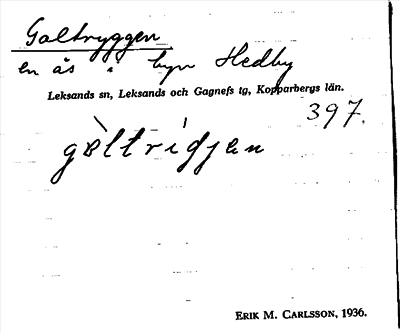 Galtryggen
en ås i byn Hedby
Leksands sn, Leksands och Gagnefs tg, Kopparbergs län.
397.
gàltrídjen
ERIK M. CARLSSON, 1936.